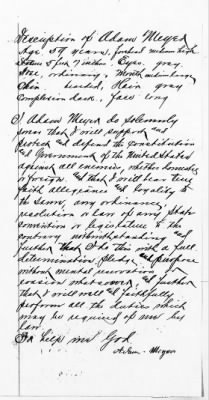 Description of Adam Meyer
Age 59 years, forehead medium high
Stature 5 feet 7 inches Eyes. gray
Nose, ordinary, Mouth medium large
Chin, beaded, Hair gray
Complexion dark, face long
I Adam Meyer do solemnly
swear that I will support and
protect and defend the constitution
and Government of the United States
against all enemies, whether domestic
or foreign. and that I will bear true
faith allegiance and loyalty to
the same, any ordinance,
resolution or law of any state
convention or legislature to the
contrary notwithstanding and
further that I do this with a full
determination pledge and purpose
without mental reservation or
evasion whatsoever, and further
that I will well and faithfully
perform all the duties which
may be required of me by
law
So help me God
Adam Meyer